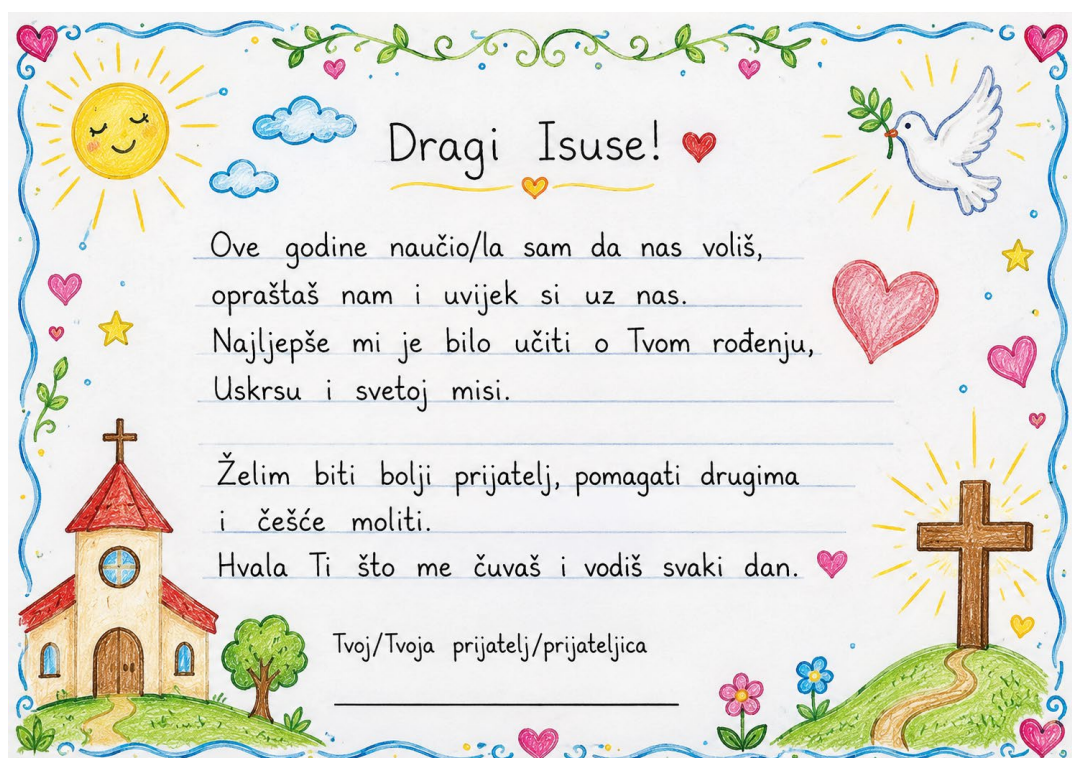 Dragi Isuse!
Ove godine naučio/la sam da nas voliš,
opraštaš nam i uvijek si uz nas.
Najljepše mi je bilo učiti o Tvom rođenju,
Uskrsu i svetoj misi.
Želim biti bolji prijatelj, pomagati drugima
i češće moliti.
Hvala Ti što me čuvaš i vodiš svaki dan.
Tvoj/Tvoja prijatelj/prijateljica